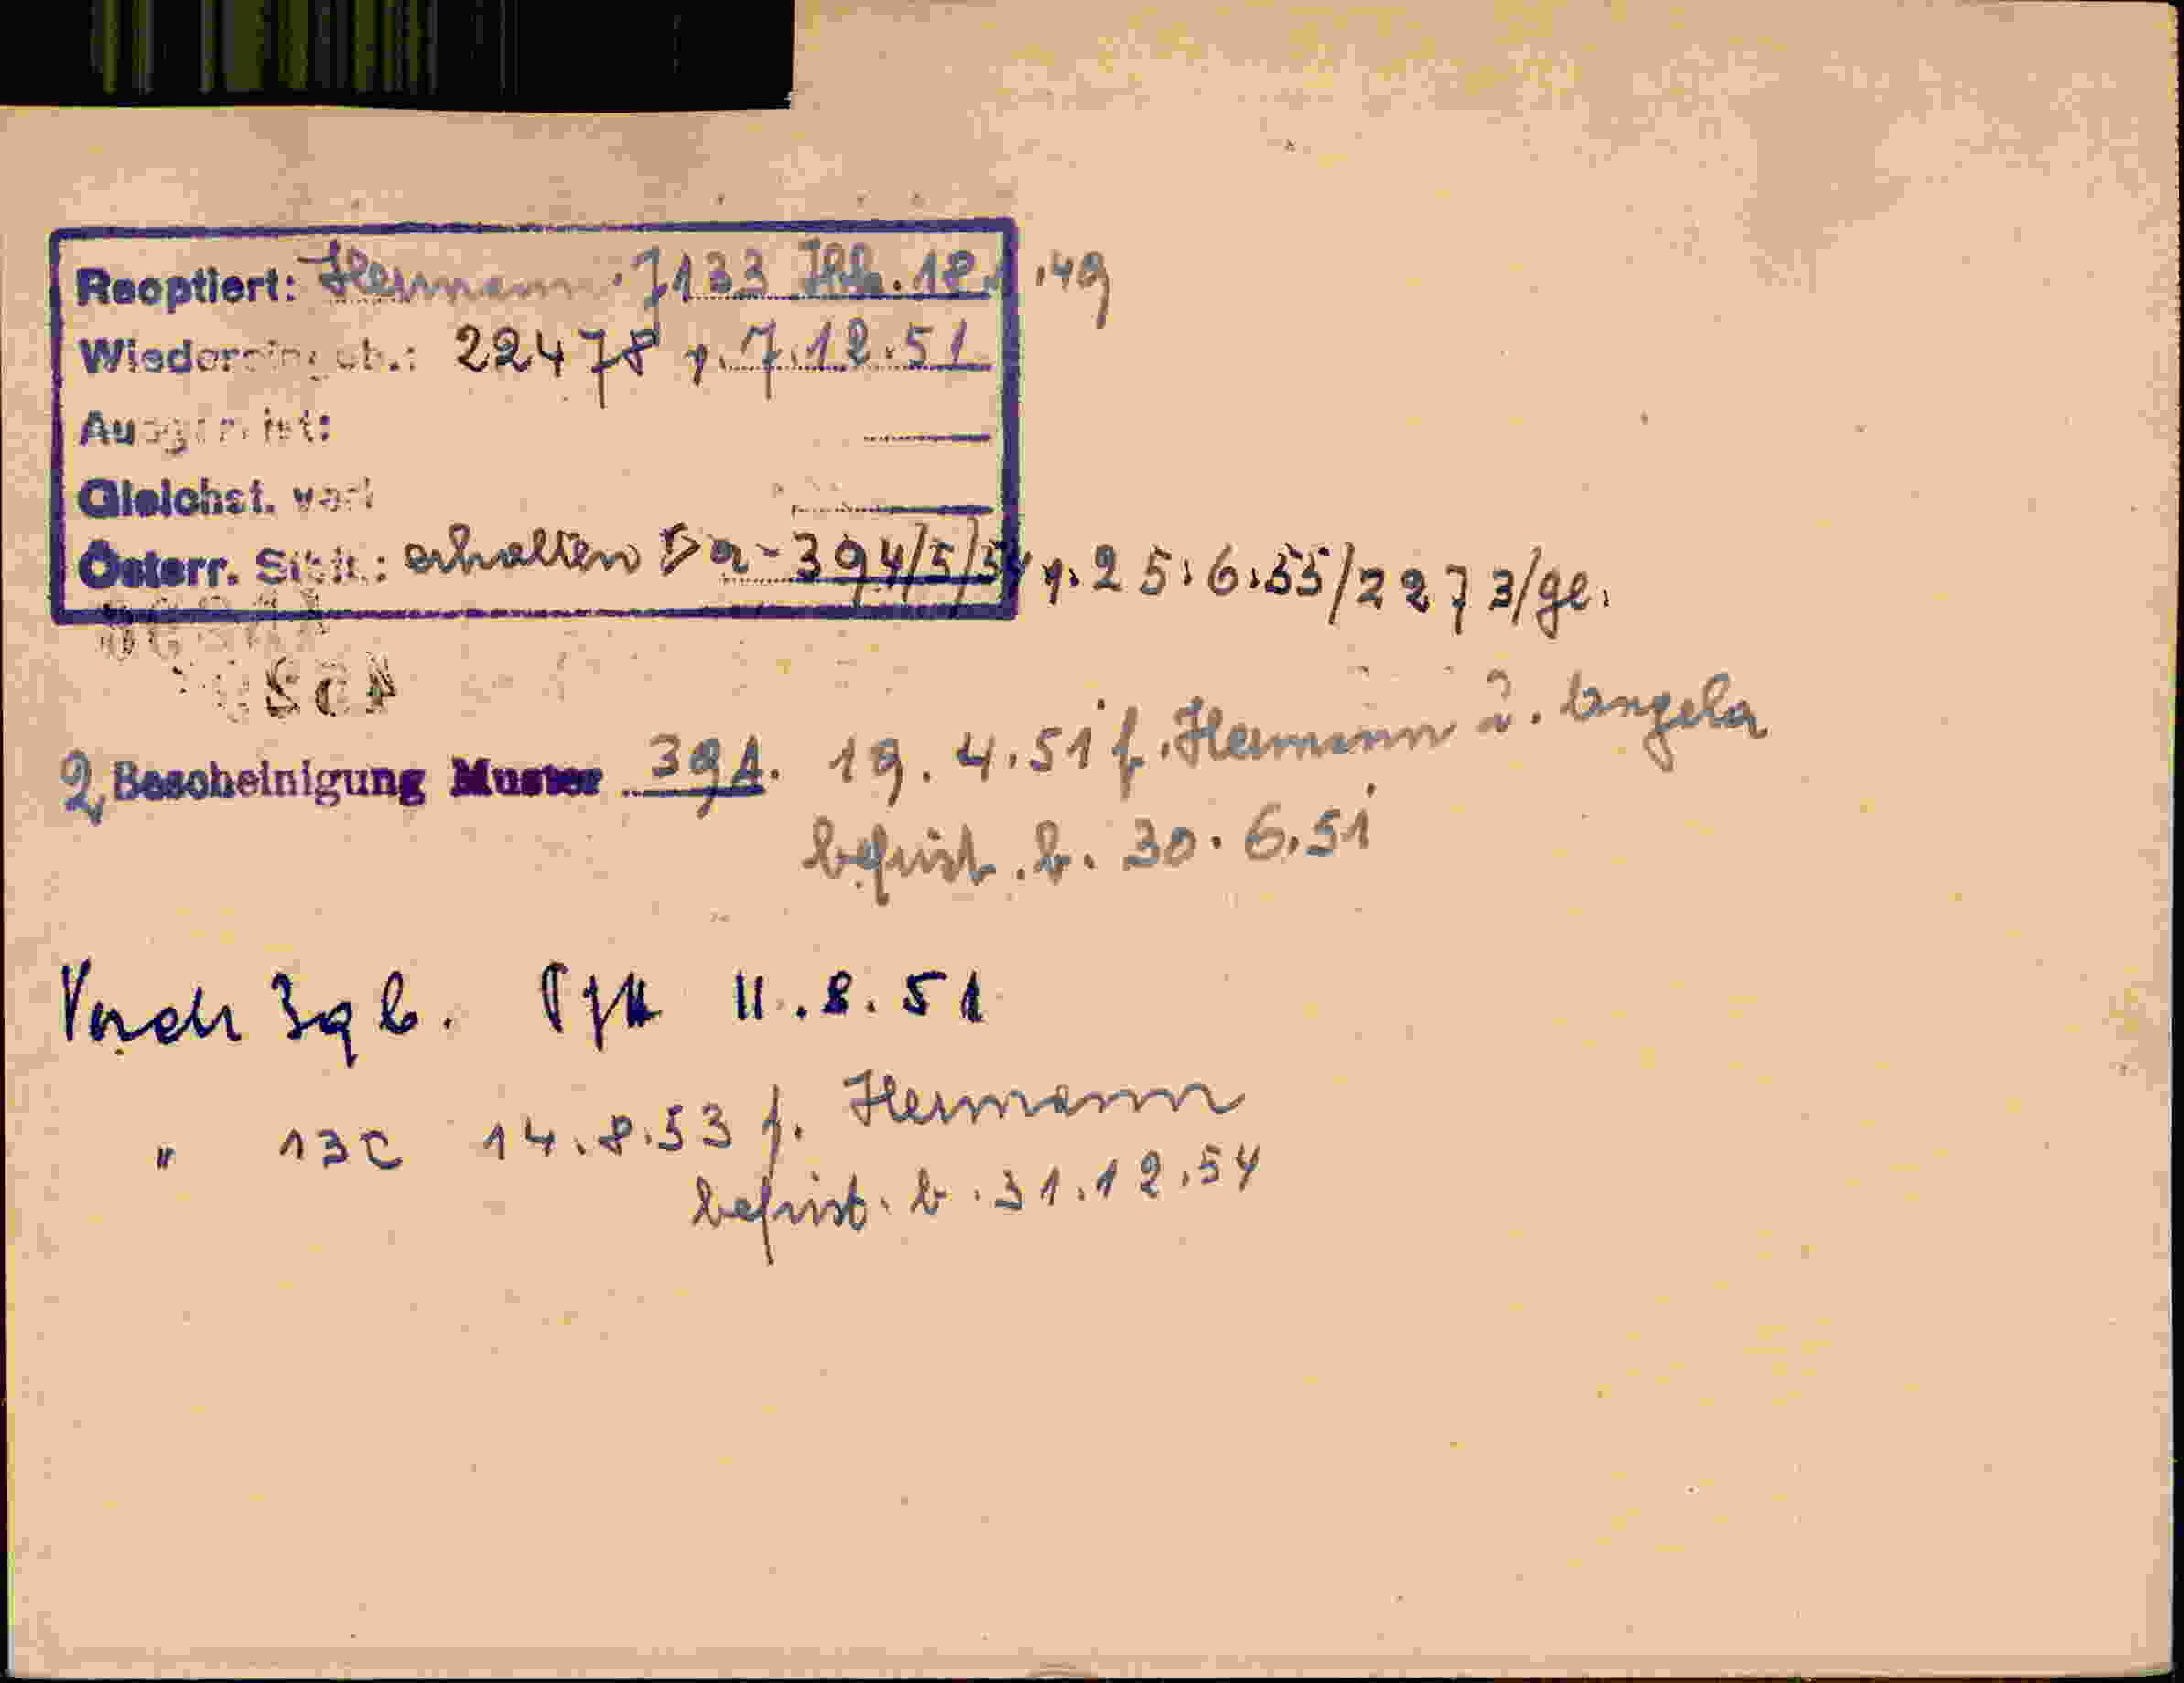 Reoptiert: Hermann 7133 Ibk. 18.1.49
Wiedereingeb.: 22478 v. 7.12.51
Ausgereist:
Gleichst. verl
Österr. Stb.: erhalten Ia-394/5/54 v. 25.6.55/2273/ge.
2 Bescheinigung Muster 39A. 19.4.51 f. Hermann u. Angela
befrist. b. 30.6.51
11.8.51
" 13C 14.8.53 f. Hermann
befrist. b. 31.12.54